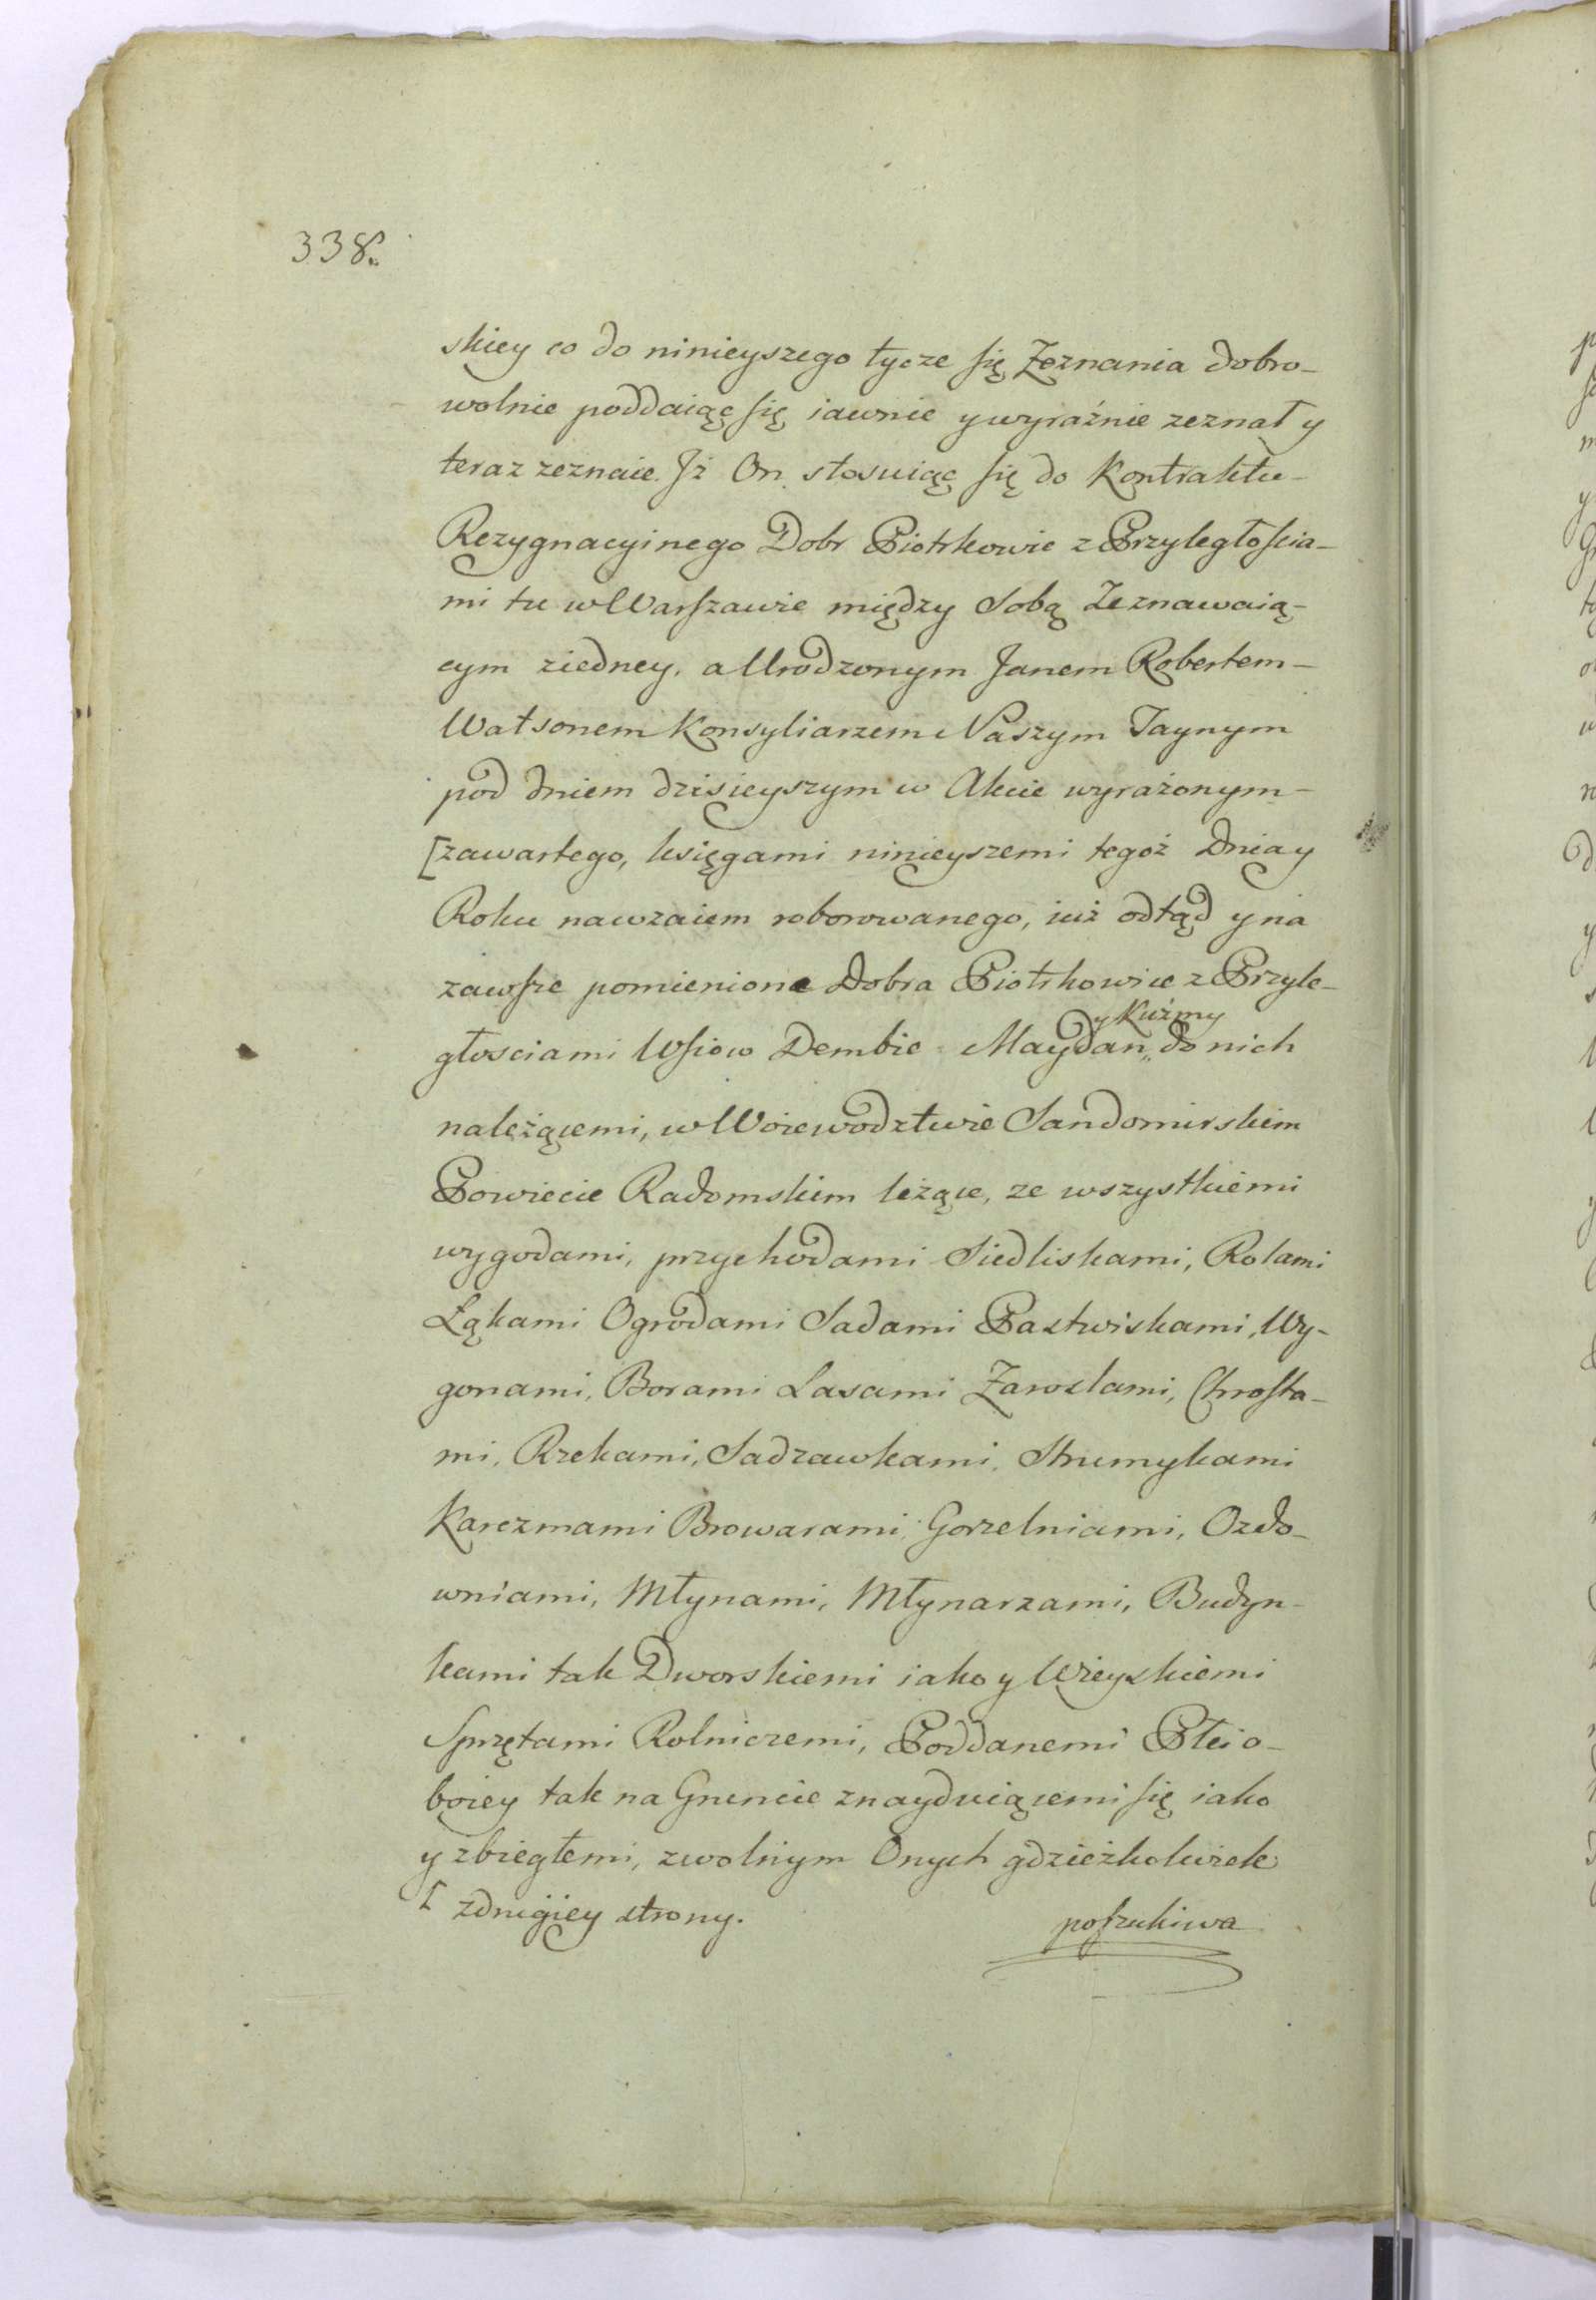 338.
skiey co do ninieyszego tycze się Zeznania dobro-
wolnie poddaiąc się iawnie y wyraźnie zeznał y
teraz zeznaie. Jż On stosuiąc się do Kontraktu-
Rezygnacyinego Dobr Piotrkowic z Przyległościa-
mi tu w Warszawie między Sobą Zeznawaią-
cym ziedney, a Urodzonym Janem Robertem-
Watsonem Konsyliarzem Naszym Taynym
pod dniem dzisieyszym w Akcie wyrażonym-
[zawartego, księgami ninieyszemi tegoż Dnia y
Roku nawzaiem roborowanego, iuż odtąd y na
zawsze pomienione Dobra Piotrkowice z Przyle-
y Kuźmy
głosciami Wsiow Dembie Maydan,, do nich
należącemi, w Woiewodztwie Sandomirskim
Powiecie Radomskim leżące, ze wszystkiemi
wygodami, przychodami Siedliskami, Rolami
Łąkami Ogrodami Sadami Pastwiskami, Wy-
gonami, Borami Lasami Zaroslami, Chrosta-
mi, Rzekami, Sadzawkami, Strumykami
Karczmami Browarami, Gorzelniami, Ozdo-
wniami, Młynami, Młynarzami, Budyn-
kami tak Dworskiemi iako y Wieyskiemi
Sprzętami Rolniczemi, Poddanemi Płci o-
boiey tak na Gruncie znayduiącemi się iako
y zbiegłemi, z wolnym Onych gdzieżkolwiek
[ zdrugiey strony.
poszukiwa